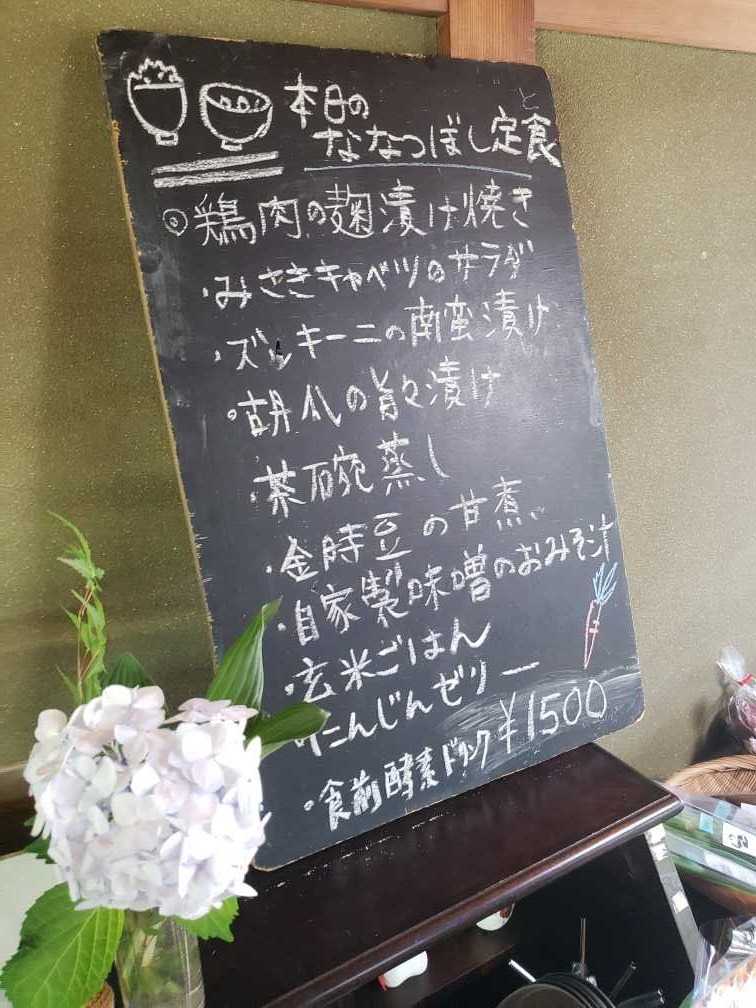 本日の
ななつぼし定食
◎鶏肉の麹漬け焼き
・みさきキャベツのサラダ
・ズッキーニの南蛮漬け
・胡瓜の旨々漬け
・茶碗蒸し
・金時豆の甘煮、
・自家製味噌のおみそ汁
・玄米ごはん
・にんじんゼリー
・食前酵素ドリンク ¥1500